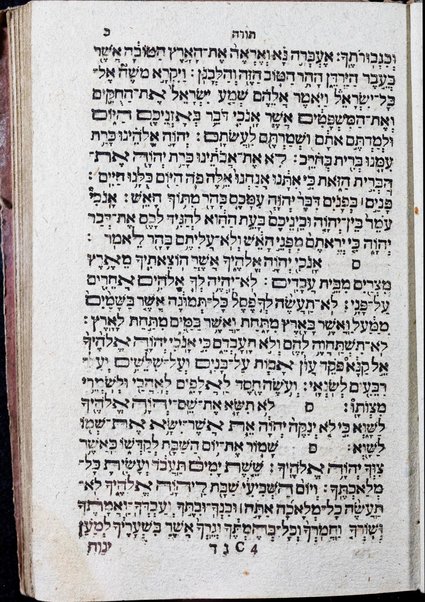 תורה כ
וכגבורתך: אעברה נא ואראה את־הארץ הטובה אשר
בעבר הירדן ההר הטוב הזה והלבנן: ויקרא משה אל־
כל־ישראל ויאמר אלהם שמע ישראל את־החקים
ואת־המשפטים אשר אנכי דבר באזניכם היום
ולמדתם אתם ושמרתם לעשתם: יהוה אלהינו כרת
עמנו ברית בחרב: לא את־אבתינו כרת יהוה את־
הברית הזאת כי אתנו אנחנו אלה פה היום כלנו חיים:
פנים בפנים דבר יהוה עמכם בהר מתוך האש: אנכי
עמד בין־יהוה וביניכם בעת ההוא להגיד לכם את־דבר
יהוה כי יראתם מפני האש ולא־עליתם בהר לאמר:
ס אנכי יהוה אלהיך אשר הוצאתיך מארץ
מצרים מבית עבדים: לא־יהיה לך אלהים אחרים
על־פני: לא־תעשה לך פסל כל־תמונה אשר בשמים
ממעל ואשר בארץ מתחת ואשר במים מתחת לארץ:
לא־תשתחוה להם ולא תעבדם כי אנכי יהוה אלהיך
אל קנא פקד עון אבות על־בנים ועל־שלשים ועל־
רבעים לשנאי: ועשה חסד לאלפים לאהבי ולשמרי
מצותו: ס לא תשא את־שם־יהוה אלהיך
לשוא כי לא ינקה יהוה את אשר־ישא את־שמו
לשוא: ס שמור את־יום השבת לקדשו כאשר
צוך יהוה אלהיך: ששת ימים תעבד ועשית כל־
מלאכתך: ויום השביעי שבת ליהוה אלהיך לא־
תעשה כל־מלאכה אתה ובנך־ובתך ועבדך־ואמתך
ושורך וחמרך וכל־בהמתך וגרך אשר בשעריך למען
נד C 4 ינוח